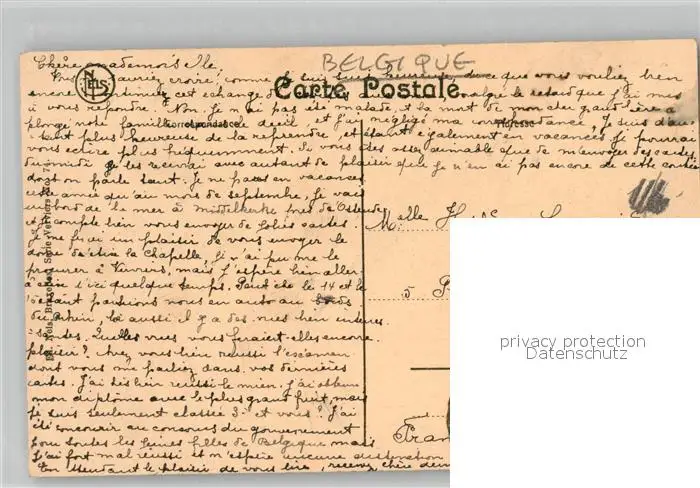 BELGIQUE
Chère mademoiselle,
croire, comme je suis heureuse, de ce que vous vouliez bien
Carte Postale.
encore cet échange malgré le retard que j'ai mis
à vous répondre! Non je n'ai pas été malade, et la mort de mon cher grand'père a
plongé notre famille le deuil, et j'ai négligé ma correspondance, je suis d'au-
Correspondance
Adresse
tant plus heureuse de la reprendre, et étant également en vacances je pourrai
vous écrire plus fréquemment. Si vous êtes assez aimable que de m'envoyer des cartes
du midi je les recevrai avec autant de plaisir que je n'en ai pas encore de cette contrée
dont on parle tant. Je ne pars en vacances
cette année qu'au mois de septembre, je vais
au bord de la mer à Middelkerke près de Ostende
et compte bien vous envoyer de jolies cartes.
Je me fis un plaisir de vous envoyer le
la Chapelle, je n'ai pu me le
procurer à Verviers, mais j'espère bien aller
d'ici quelque temps. Peut être le 14 et le
15 août partirons nous en auto au bords
du Rhin, là aussi il y a des vues bien intéres-
santes. Quelles vues vous feraient-elles encore
plaisir? Avez vous bien réussi l'examen
dont vous me parliez dans vos dernières
cartes. J'ai très bien réussi le mien. J'ai obtenu
mon diplôme avec le plus grand fruit, mais
je suis seulement classée 3e et vous? J'ai
été concourir au concours du gouvernement
pour toutes les jeunes filles de Belgique mais
j'ai fort mal réussi et n'espère aucune distinction
En attendant le plaisir de vous lire, recevez, chère
Nels
Ed. Nels, Bruxelles Série Verviers No. 7
Melle
à P
Fran
privacy protection
Datenschutz